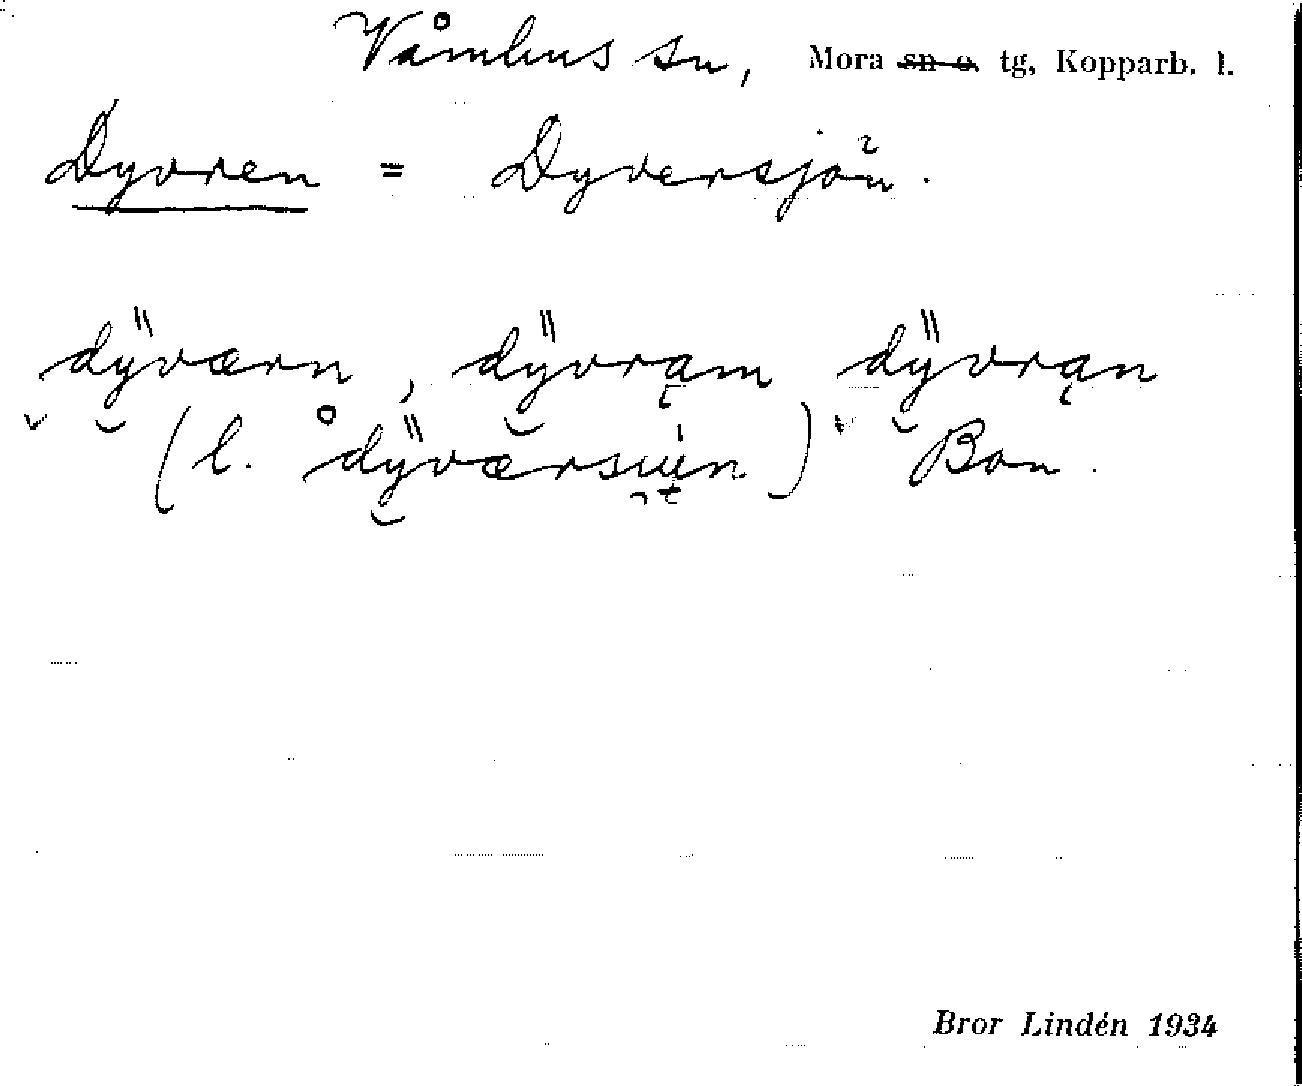 Våmhus sn, Mora sn o. tg, Kopparb. l.
Dyvren = Dyversjön.
dÿværn, dÿvrąm dÿvrąn
(l. å dÿværsiuin) Bon.
Bror Lindén 1934